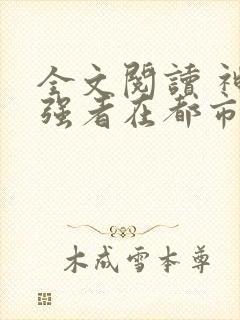 全文閱讀 神
强者在都市
木成雪本尊